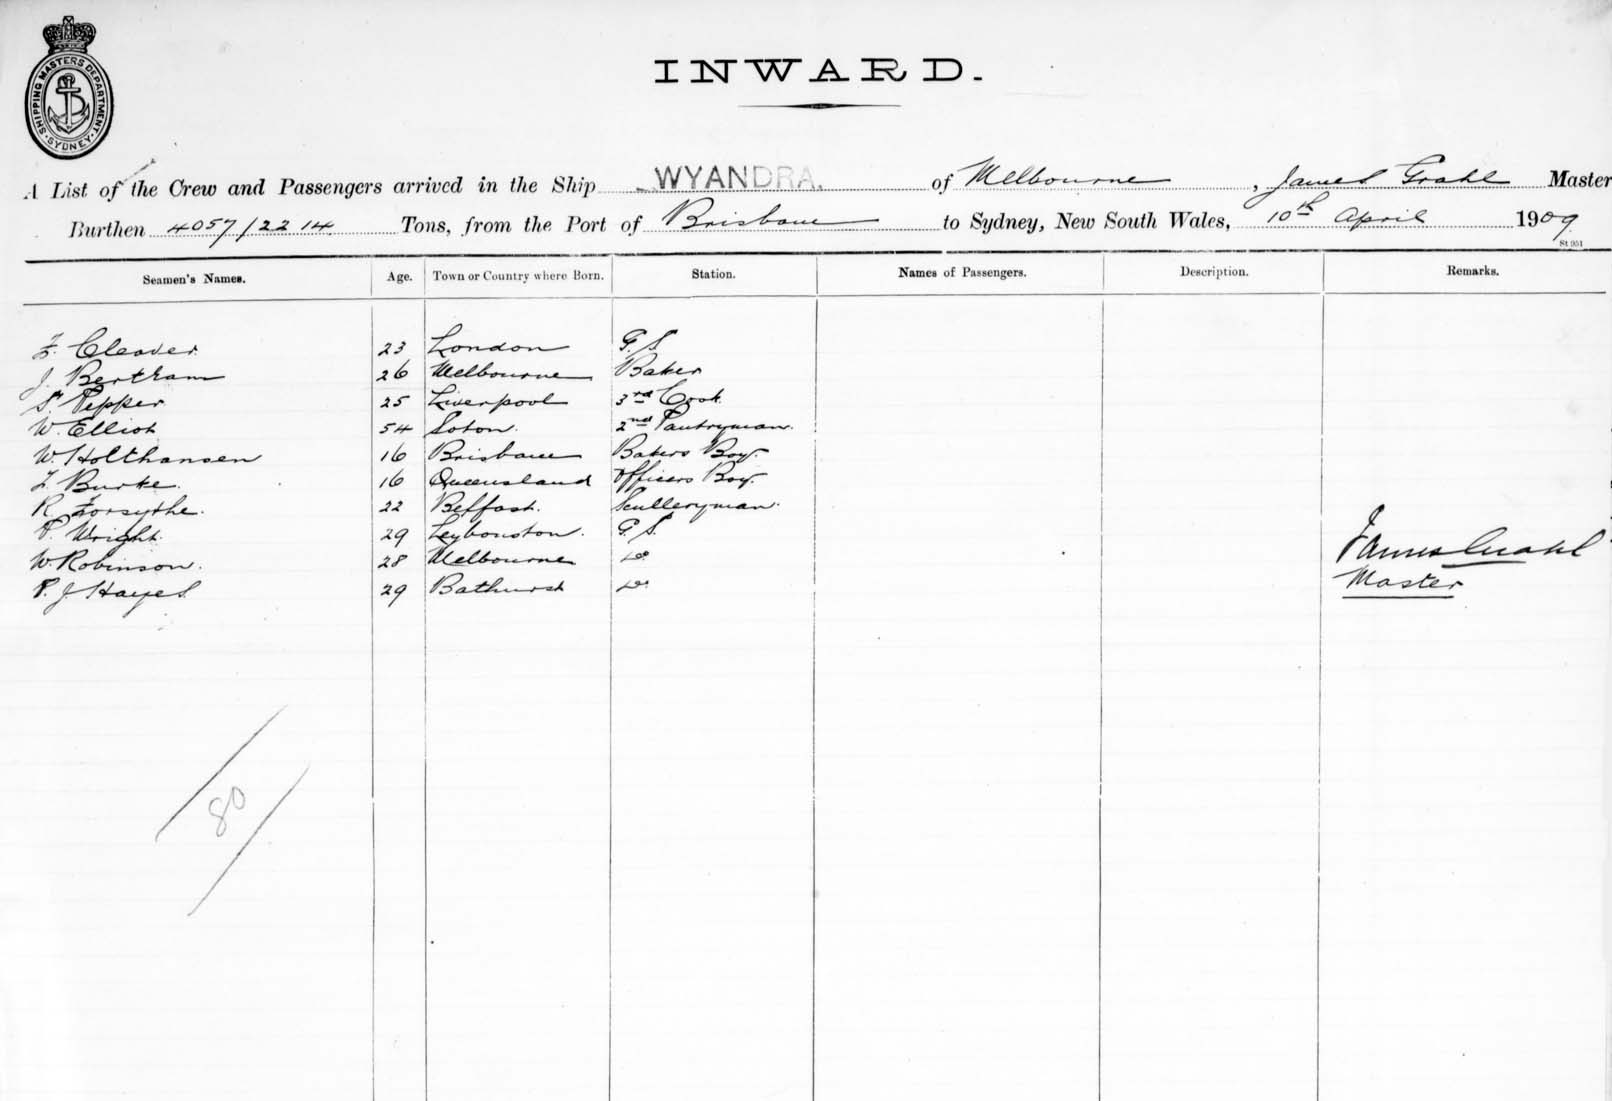 SHIPPING MASTERS DEPARTMENT
SYDNEY
INWARD.
A List of the Crew and Passengers arrived in the Ship WYANDRA. of Melbourne, James Grahl Master
Burthen 4057/2214 Tons, from the Port of Brisbane to Sydney, New South Wales, 10th April 1909
St 951
Seamen's Names. Age. Town or Country where Born. Station. Names of Passengers. Description. Remarks.
F. Cleaver. 23 London G.S.
J. Bertram 26 Melbourne Baker
S. Pepper 25 Liverpool 3rd Cook.
W. Elliot 54 Soton. 2nd Pantryman.
W. Holthansen 16 Brisbane Bakers Boy.
F. Burke. 16 Queensland Officers Boy.
R. Forsythe. 22 Belfast. Sculleryman.
P. Wright. 29 Leybouston. G.S.
W. Robinson. 28 Melbourne Do.
P. J. Hayes. 29 Bathurst Do.
James Grahl
Master
80